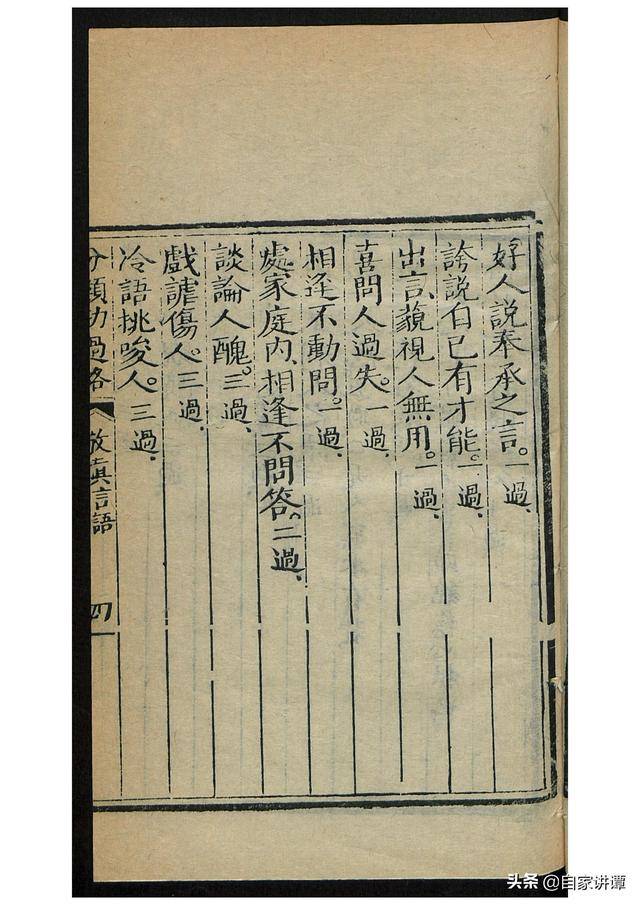 好人說奉承之言。一過、
誇說自己有才能。一過、
出言、藐視人無用。一過、
喜問人過失。一過、
相逢不動問。一過、
處家庭內、相逢不問答。二過、
談論人醜。三過、
戲謔傷人。三過、
冷語挑唆人。三過、
分類功過格 敬真言語 四
头条 @自家讲谭